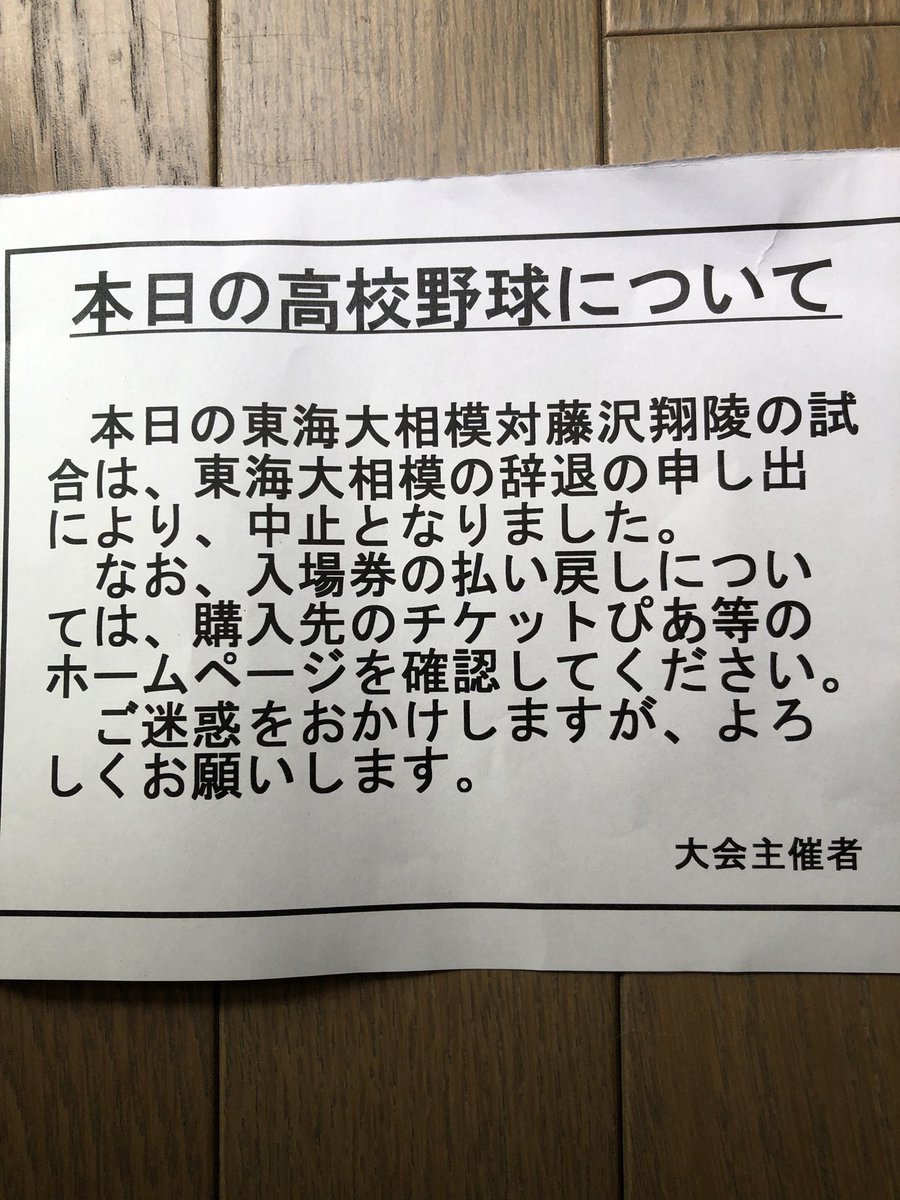 本日の高校野球について
本日の東海大相模対藤沢翔陵の試
合は、東海大相模の辞退の申し出
により、中止となりました。
なお、入場券の払い戻しについ
ては、購入先のチケットぴあ等の
ホームページを確認してください。
ご迷惑をおかけしますが、よろ
しくお願いします。
大会主催者